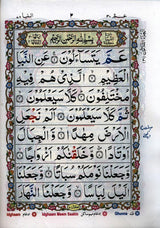 بِسْمِ اللهِ الرَّحْمٰنِ الرَّحِيْمِ
عَمَّ يَتَسَآءَلُوْنَ عَنِ النَّبَاِ
الْعَظِيْمِ الَّذِيْ هُمْ فِيْهِ
مُخْتَلِفُوْنَ كَلَّا سَيَعْلَمُوْنَ
ثُمَّ كَلَّا سَيَعْلَمُوْنَ اَلَمْ نَجْعَلِ
الْاَرْضَ مِهٰدًا وَّالْجِبَالَ
اَوْتَادًا وَّخَلَقْنٰكُمْ اَزْوَاجًا
وَّجَعَلْنَا نَوْمَكُمْ سُبَاتًا وَّجَعَلْنَا
الَّيْلَ لِبَاسًا وَّجَعَلْنَا النَّهَارَ
Ikhfa Meem Saakin
Ghunna